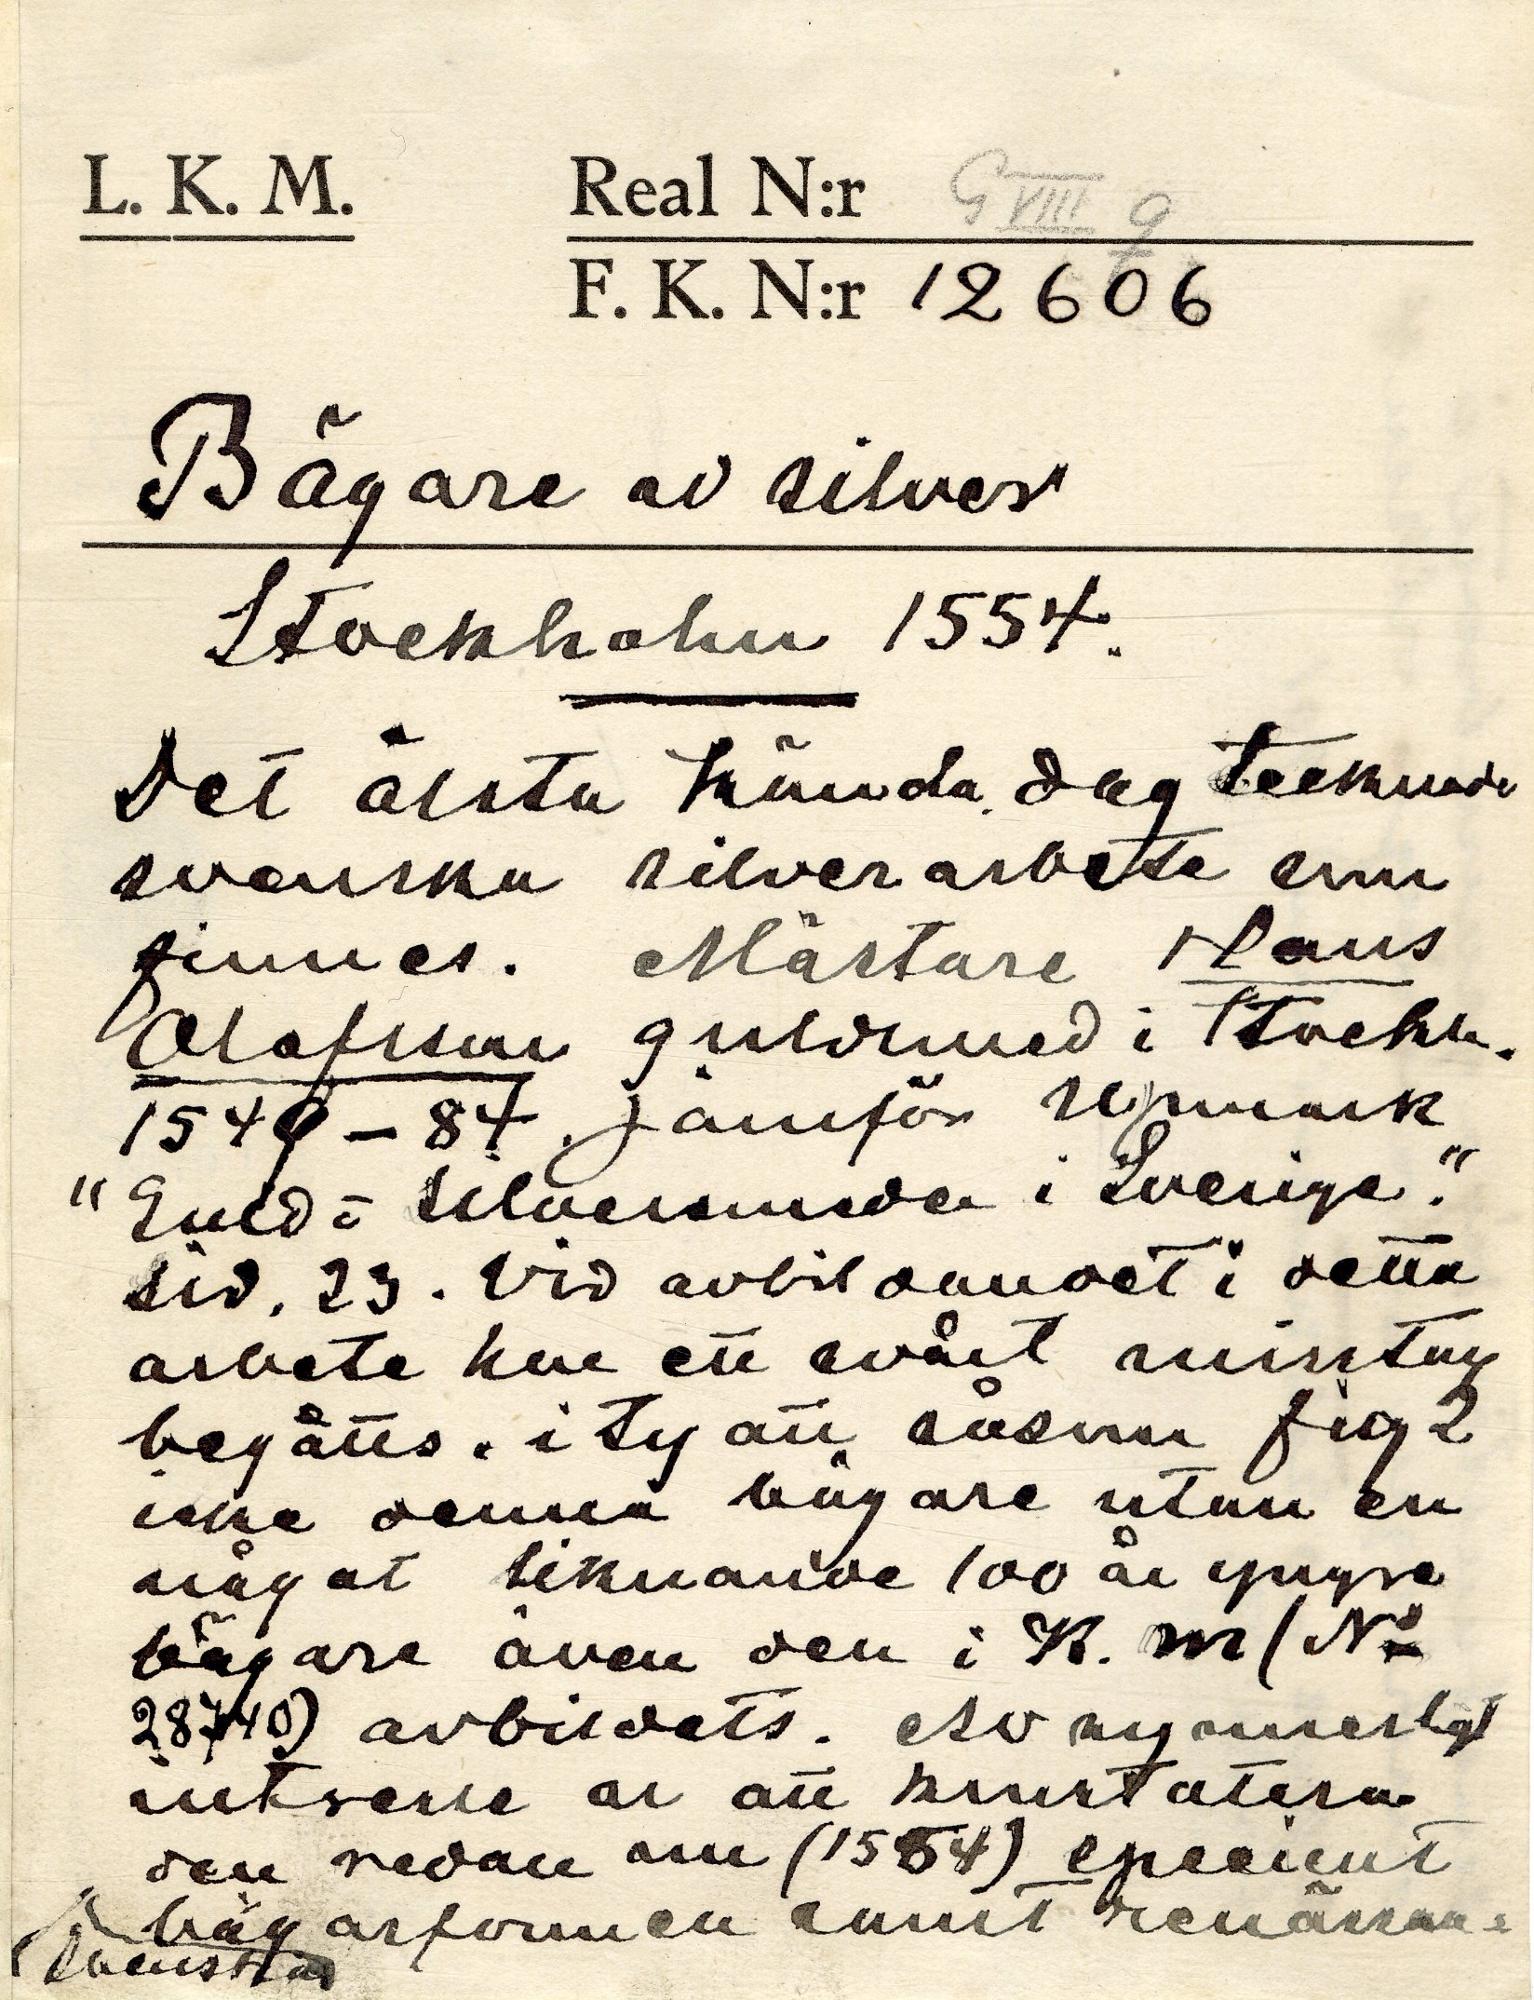 L. K. M.
Real N:r G VIII 9
F. K. N:r 12606
Bägare av silver
Stockholm 1554.
Det älsta kända dagtecknade
svenska silverarbete som
finnes. Mästare Hans
Olofsson guldsmed i Stockh.
1549–84. Jämför Upmark
"Guld- silversmeder i Sverige."
sid. 23. Vid avbildandet i detta
arbete har ett svårt misstag
begåtts. i ty att såsom fig 2
icke denna bägare utan en
något liknande 100 år yngre
bägare även den i K. M (No
28740) avbildats. Av synnerligt
intresse är att konstatera
den redan om (1554) specieut
svenska
bägarformen samt renässan-